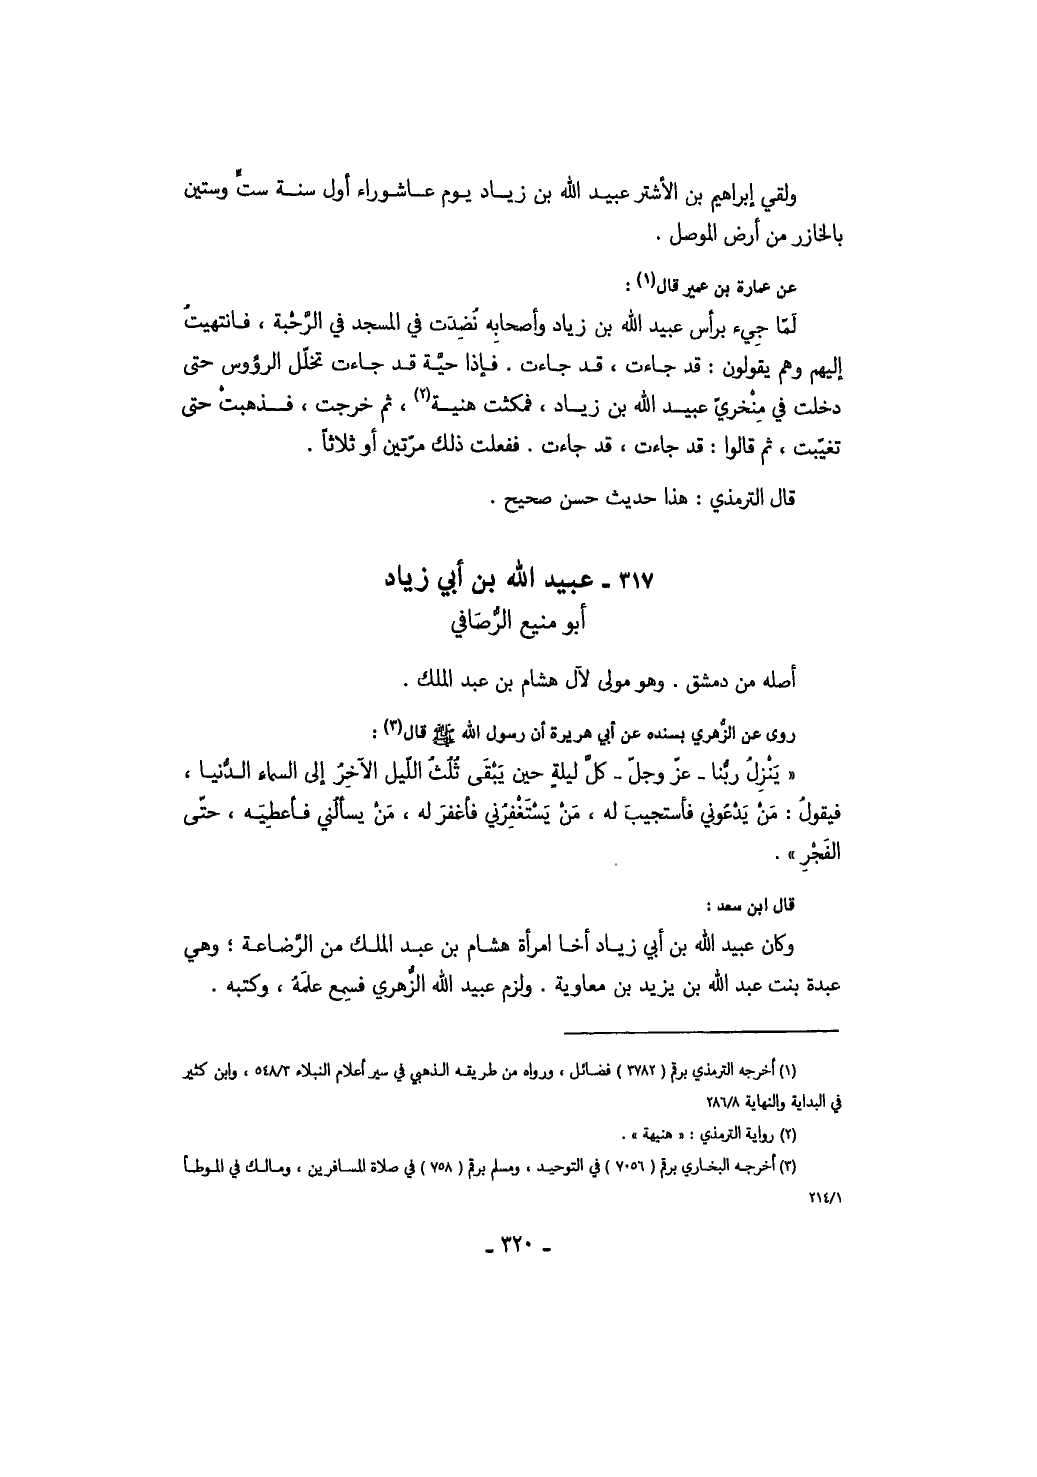 ولقي إبراهيم بن الأشتر عبيد الله بن زياد يوم عاشوراء أول سنة ستٍّ وستين
بالخازر من أرض الموصل .
عن عمارة بن عمير قال(١) :
لَمّا جِيء برأس عبيد الله بن زياد وأصحابِه نُضِدَت في المسجد في الرَّحْبة ، فانتهيتُ
إليهم وهم يقولون : قد جاءت ، قد جاءت . فإذا حيَّة قد جاءت تخلّل الرؤوس حتى
دخلت في مِنْخريّ عبيد الله بن زياد ، فمكثت هنية(٢) ، ثم خرجت ، فذهبتْ حتى
تغيّبت ، ثم قالوا : قد جاءت ، قد جاءت . ففعلت ذلك مرّتين أو ثلاثاً .
قال الترمذي : هذا حديث حسن صحيح .
٣١٧ ـ عبيد الله بن أبي زياد
أبو منيع الرُّصَافي
أصله من دمشق . وهو مولى لآل هشام بن عبد الملك .
روى عن الزُّهري بسنده عن أبي هريرة أن رسول الله ﷺ قال(٣) :
« يَنْزِلُ ربُّنا ـ عزّ وجلّ ـ كلَّ ليلةٍ حين يَبْقَى ثُلُثُ اللّيل الآخِرُ إلى السماء الدُّنيا ،
فيقولُ : مَنْ يَدْعُوني فأستجيبَ له ، مَنْ يَسْتَغْفِرُني فأغفرَ له ، مَنْ يسألُني فأعطِيَه ، حتّى
الفَجْرِ » .
قال ابن سعد :
وكان عبيد الله بن أبي زياد أخا امرأة هشام بن عبد الملك من الرَّضاعة ؛ وهي
عبدة بنت عبد الله بن يزيد بن معاوية . ولزم عبيد الله الزُّهري فسمِع علمَهُ ، وكتبه .
(١) أخرجه الترمذي برقم ( ٣٧٨٢ ) فضائل ، ورواه من طريقه الذهبي في سير أعلام النبلاء ٥٤٨/٣ ، وابن كثير
في البداية والنهاية ٢٨٦/٨
(٢) رواية الترمذي : « هنيهة » .
(٣) أخرجه البخاري برقم ( ٧٠٥٦ ) في التوحيد ، ومسلم برقم ( ٧٥٨ ) في صلاة المسافرين ، ومالك في الموطأ
٢١٤/١
ـ ٣٢٠ ـ